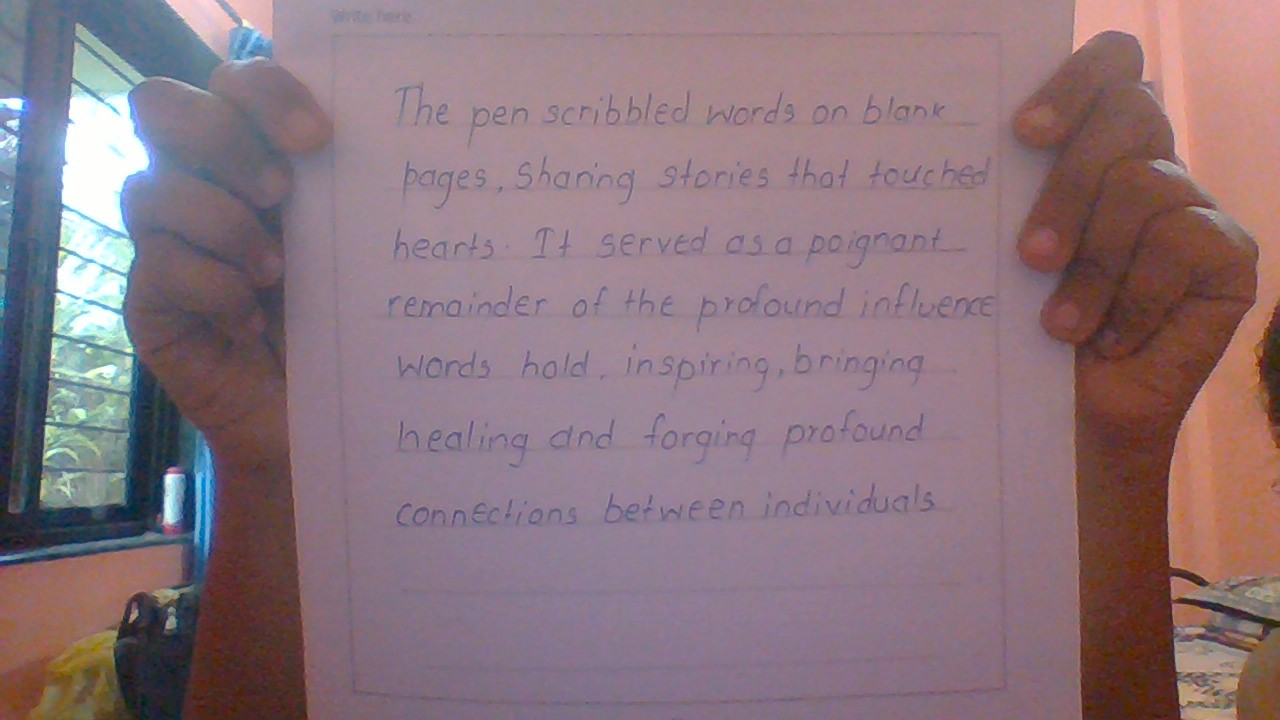 Write here
The pen scribbled words on blank
pages, Sharing stories that touched
hearts. It served as a poignant
remainder of the profound influence
words hold, inspiring, bringing
healing and forging profound
connections between individuals